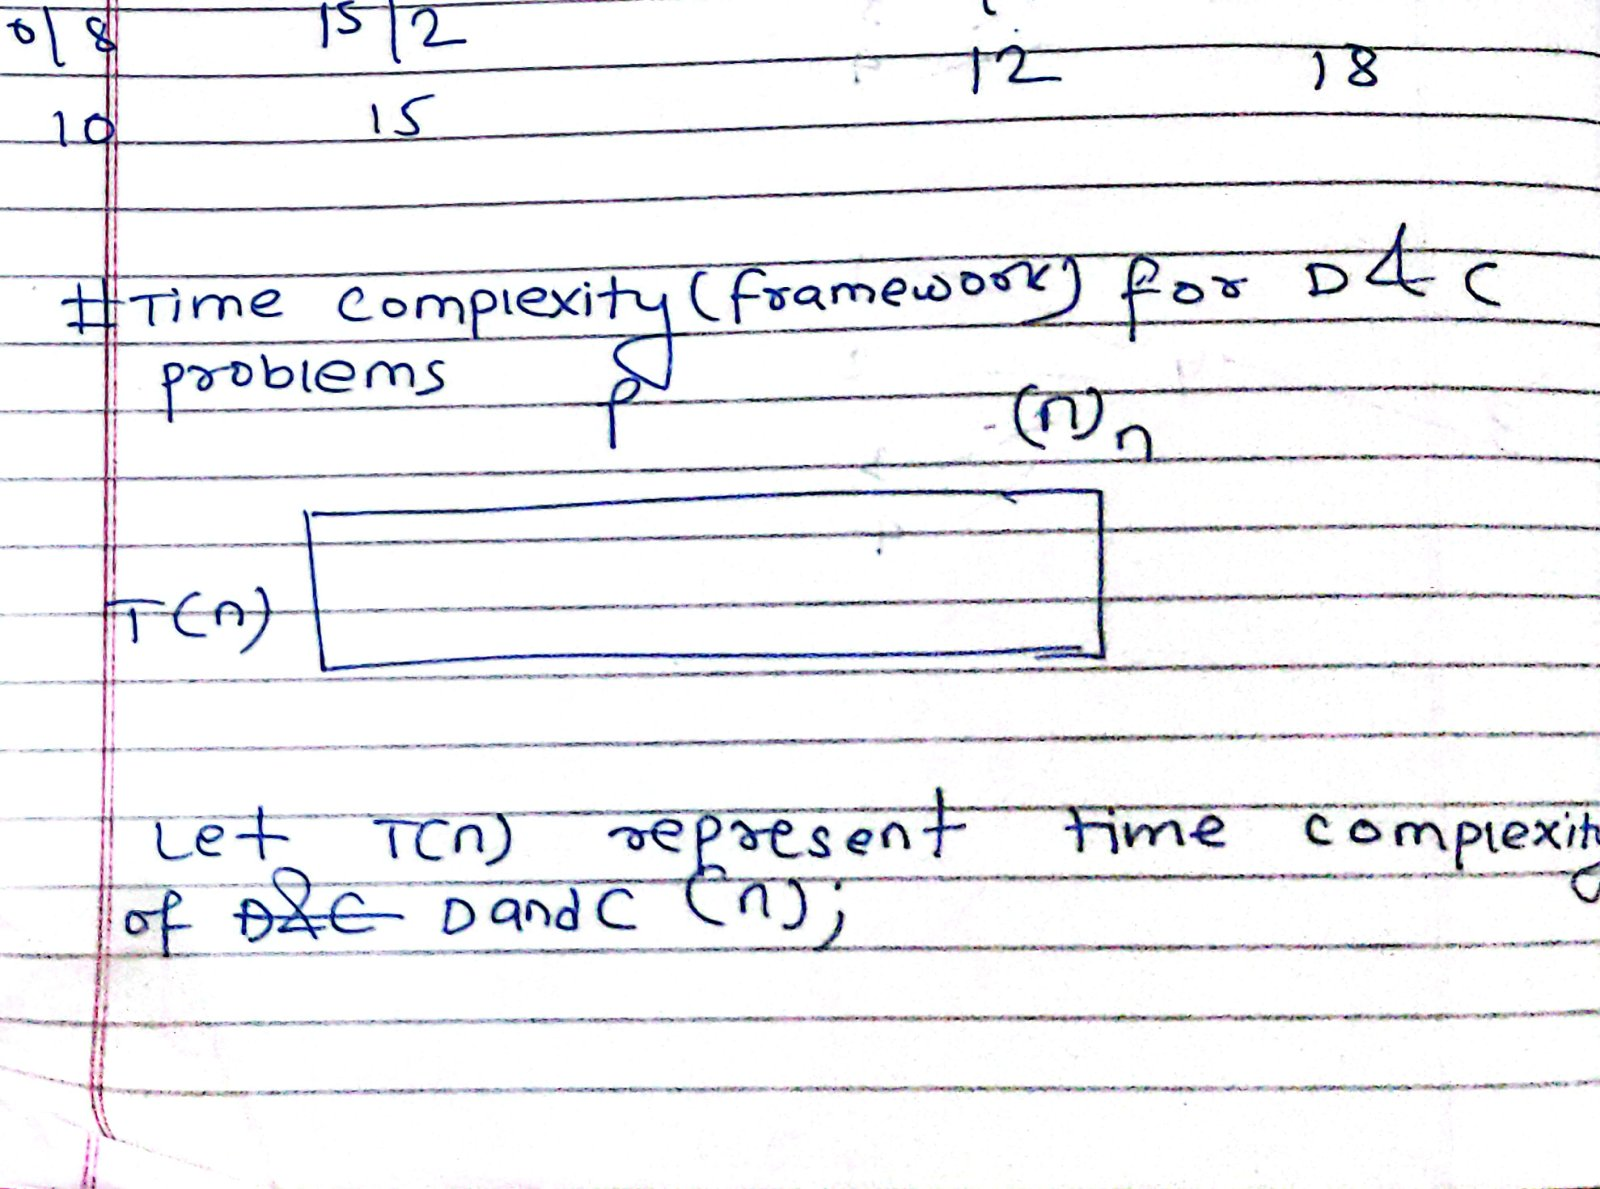 8 15/2
12 18
10 15
# Time complexity (framework) for D & C
problems
P (n) n
T(n)
Let T(n) represent time complexity
of D&C D and C (n);